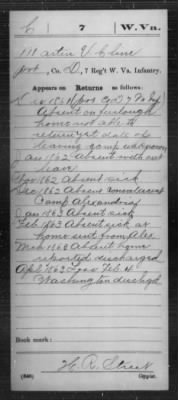 C | 7 | W. Va.
Martin V Cline
Co. D, 7 Reg't W. Va. Infantry.
Appears on Returns as follows:
Absent on furlough
home not able to
return yet date of
leaving camp unknown
Jan 1862 Absent without
leave
Nov 1862 Absent sick
Dec 1862 Absent convalescent
Camp Alexandria
Jan 1863 Absent sick
Feb 1863 Absent sick at
home sent from Alex
Mar 1863 Absent home
reported discharged
Apl 1863 Loss Feb 4
Washington dischgd
Book mark:
H. R. Street
(546) Copyist.